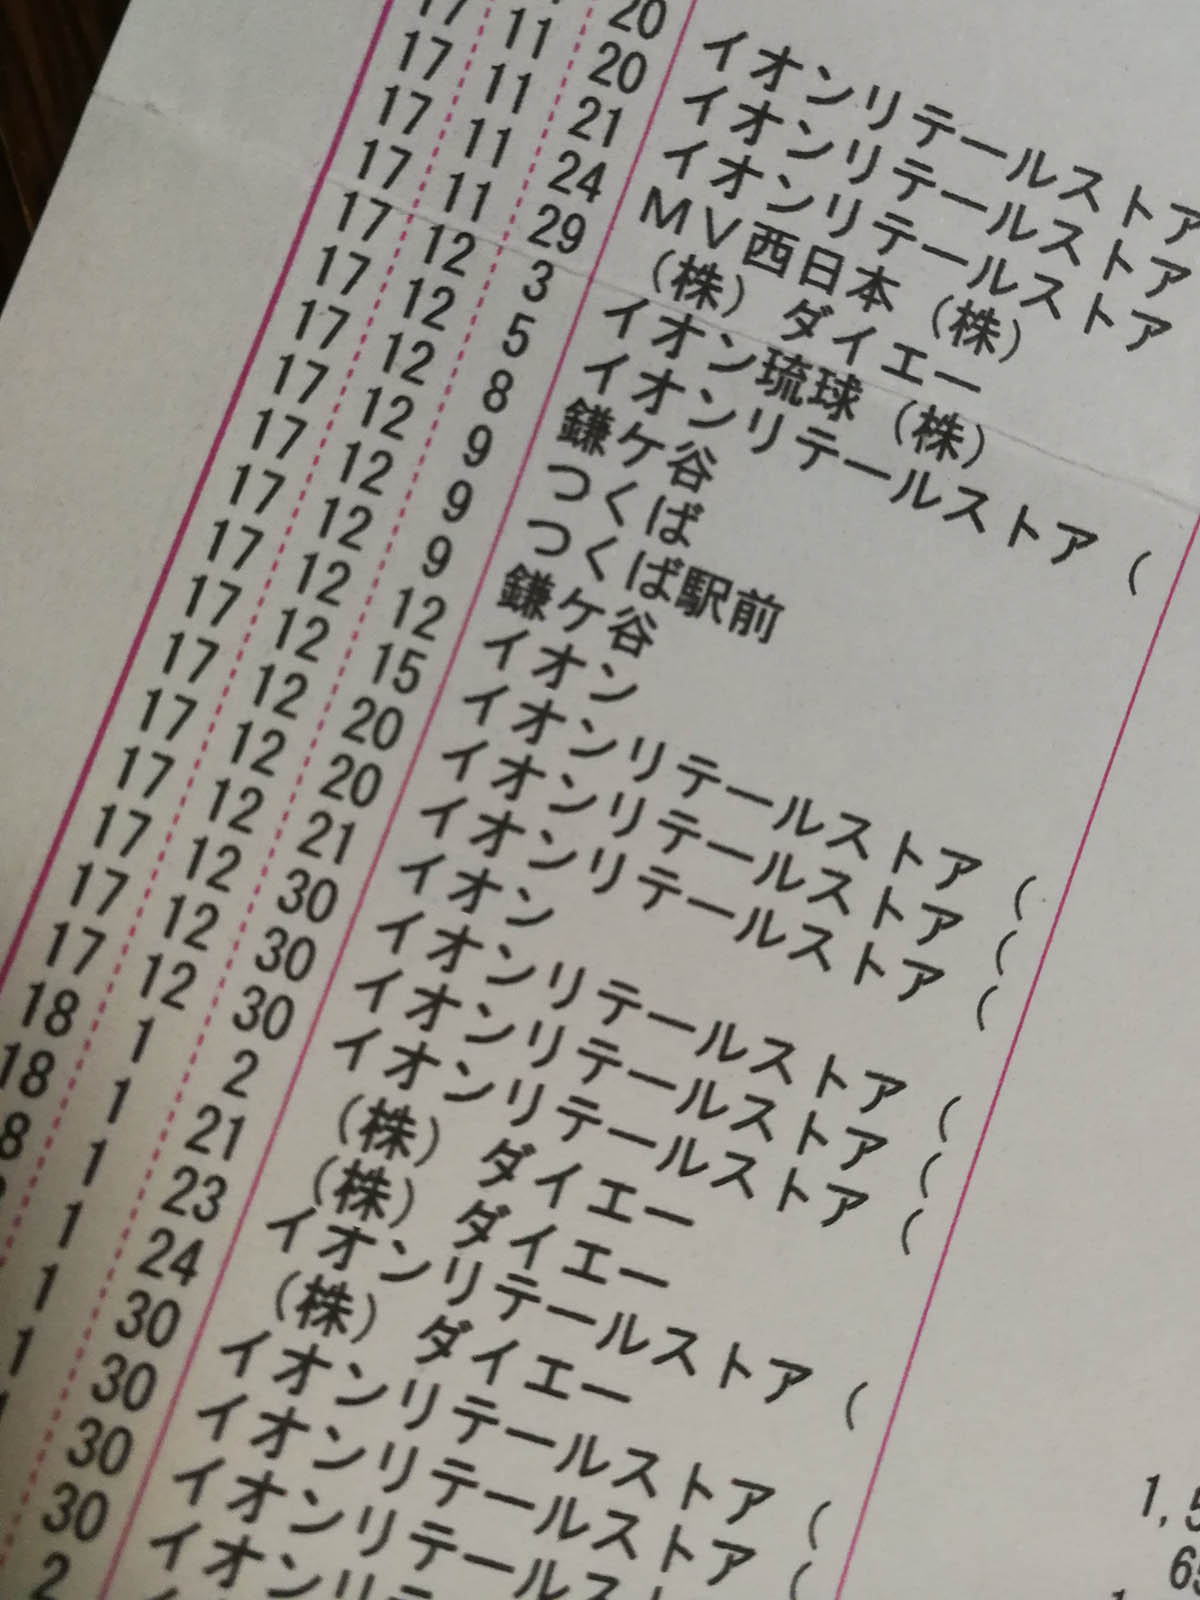 20 イオンリテールストア
17 11 20 イオンリテールストア
17 11 21 イオンリテールストア
17 11 24 MV西日本（株）
17 11 29 （株）ダイエー
17 12 3 イオン琉球（株）
17 12 5 イオンリテールストア（
17 12 8 鎌ケ谷
17 12 9 つくば
17 12 9 つくば駅前
17 12 9 鎌ケ谷
17 12 12 イオン
17 12 15 イオンリテールストア（
17 12 20 イオンリテールストア（
17 12 20 イオンリテールストア（
17 12 21 イオン
17 12 30 イオンリテールストア（
17 12 30 イオンリテールストア（
17 12 30 イオンリテールストア（
18 1 2 （株）ダイエー
18 1 21 （株）ダイエー
8 1 23 イオンリテールストア（
1 24 （株）ダイエー
1 30 イオンリテールストア（ 1,5
1 30 イオンリテールストア（ 65
30 イオンリテールス
30 イオンリテ
2